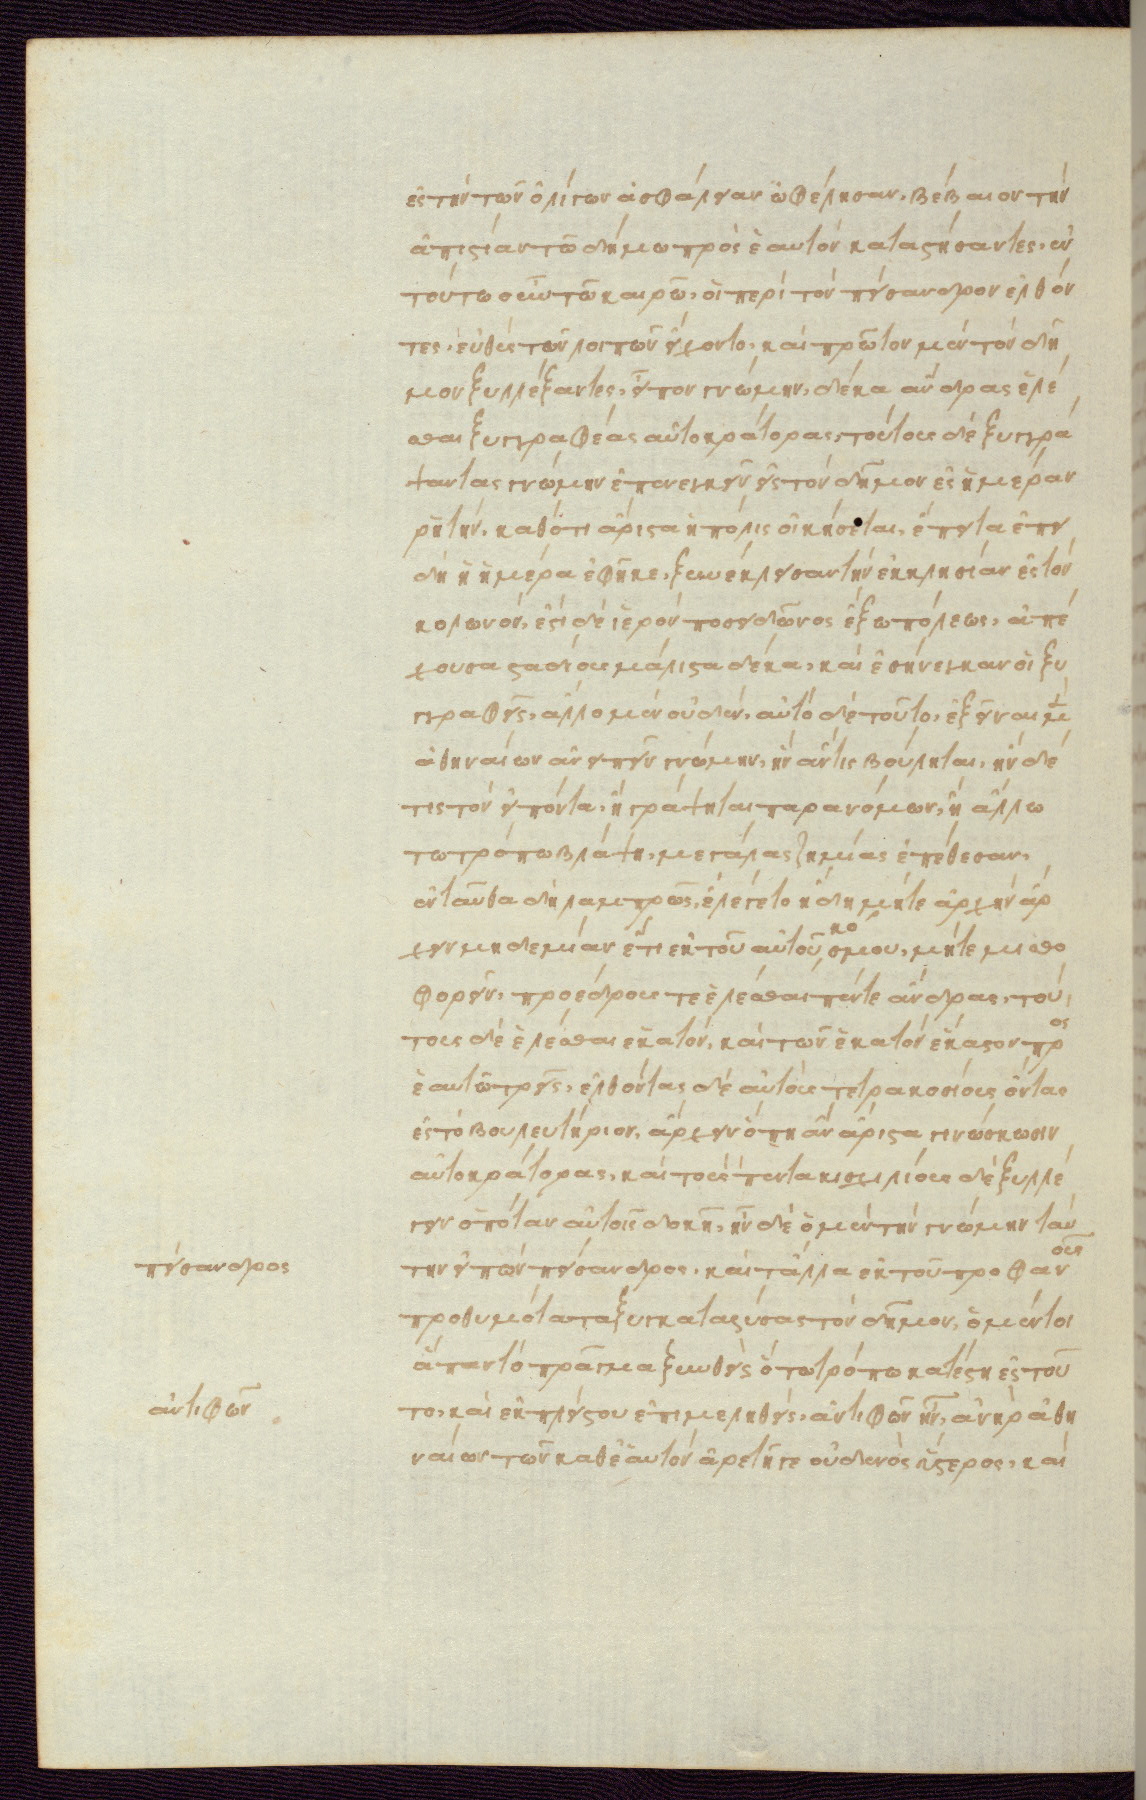 ἐς τὴν τῶν ὀλίγων ἀσφάλειαν ὠφέλησαν, βέβαιον τὴν
ἀπιστίαν τῶ δήμω πρὸς ἑαυτὸν καταστήσαντες, ἐν
τούτω οὖν τῶ καιρῶ, οἱ περὶ τὸν πείσανδρον ἐλθόν
τες, εὐθὺς τῶν λοιπῶν εἴχοντο, καὶ πρῶτον μὲν τὸν δῆ
μον ξυλλέξαντες, εἶπον γνώμην, δέκα ἄνδρας ἑλέ
σθαι ξυγγραφέας αὐτοκράτορας, τούτους δὲ ξυγγρά
ψαντας γνώμην ἐπενεγκεῖν εἰς τὸν δῆμον ἐς ἡμέραν
ῥητὴν, καθότι ἄριστα ἡ πόλις οἰκήσεται, ἔπειτα ἐπει
δὴ ἡ ἡμέρα ἐφῆκε, ξυνέκλεισαν τὴν ἐκκλησίαν ἐς τὸν
κολωνόν, ἔστι δὲ ἱερὸν ποσειδῶνος ἔξω πόλεως, ἀπέ
χουσα σταδίους μάλιστα δέκα, καὶ ἐσήνεγκαν οἱ ξυ
γγραφεῖς, ἄλλο μὲν οὐδὲν, αὐτὸ δὲ τοῦτο, ἐξεῖναι μὲν
ἀθηναίων ἀνειπεῖν γνώμην, ἣν ἄν τις βούληται, ἢν δέ
τις τὸν εἰπόντα, ἢ γράψηται παρανόμων, ἢ ἄλλω
τω τρόπω βλάψη, μεγάλας ζημίας ἐπέθεσαν,
ἐνταῦθα δὴ λαμπρῶς, ἐλέγετο ἤδη μήτε ἀρχὴν ἄρ
χειν μηδεμίαν ἔτι ἐκ τοῦ αὐτοῦ κόσμου, μήτε μισθο
φορεῖν, προέδρους τε ἑλέσθαι πέντε ἄνδρας, τού
τους δὲ ἑλέσθαι ἑκατὸν, καὶ τῶν ἑκατὸν ἕκαστον πρὸς
ἑαυτῶ τρεῖς, ἐλθόντας δὲ αὐτοὺς τετρακοσίους ὄντας
ἐς τὸ βουλευτήριον, ἄρχειν ὅπη ἂν ἄριστα γινώσκωσιν
αὐτοκράτορας, καὶ τοὺς πεντακισχιλίους δὲ ξυλλέ
γειν ὁπόταν αὐτοῖς δοκῆ, ἦν δὲ ὁ μὲν τὴν γνώμην ταύ
πείσανδρος
την εἰπὼν πείσανδρος, καὶ τἆλλα ἐκ τοῦ προφανοῦς
προθυμότατα ξυγκαταλύσας τὸν δῆμον, ὁ μέντοι
ἅπαν τὸ πρᾶγμα ξυνθεὶς ὅτω τρόπω κατέστη ἐς τοῦ
ἀντιφῶν
το, καὶ ἐκ πλείστου ἐπιμεληθεὶς, ἀντιφῶν ἦν, ἀνὴρ ἀθη
ναίων τῶν καθ' ἑαυτὸν ἀρετῆ τε οὐδενὸς ὕστερος, καὶ